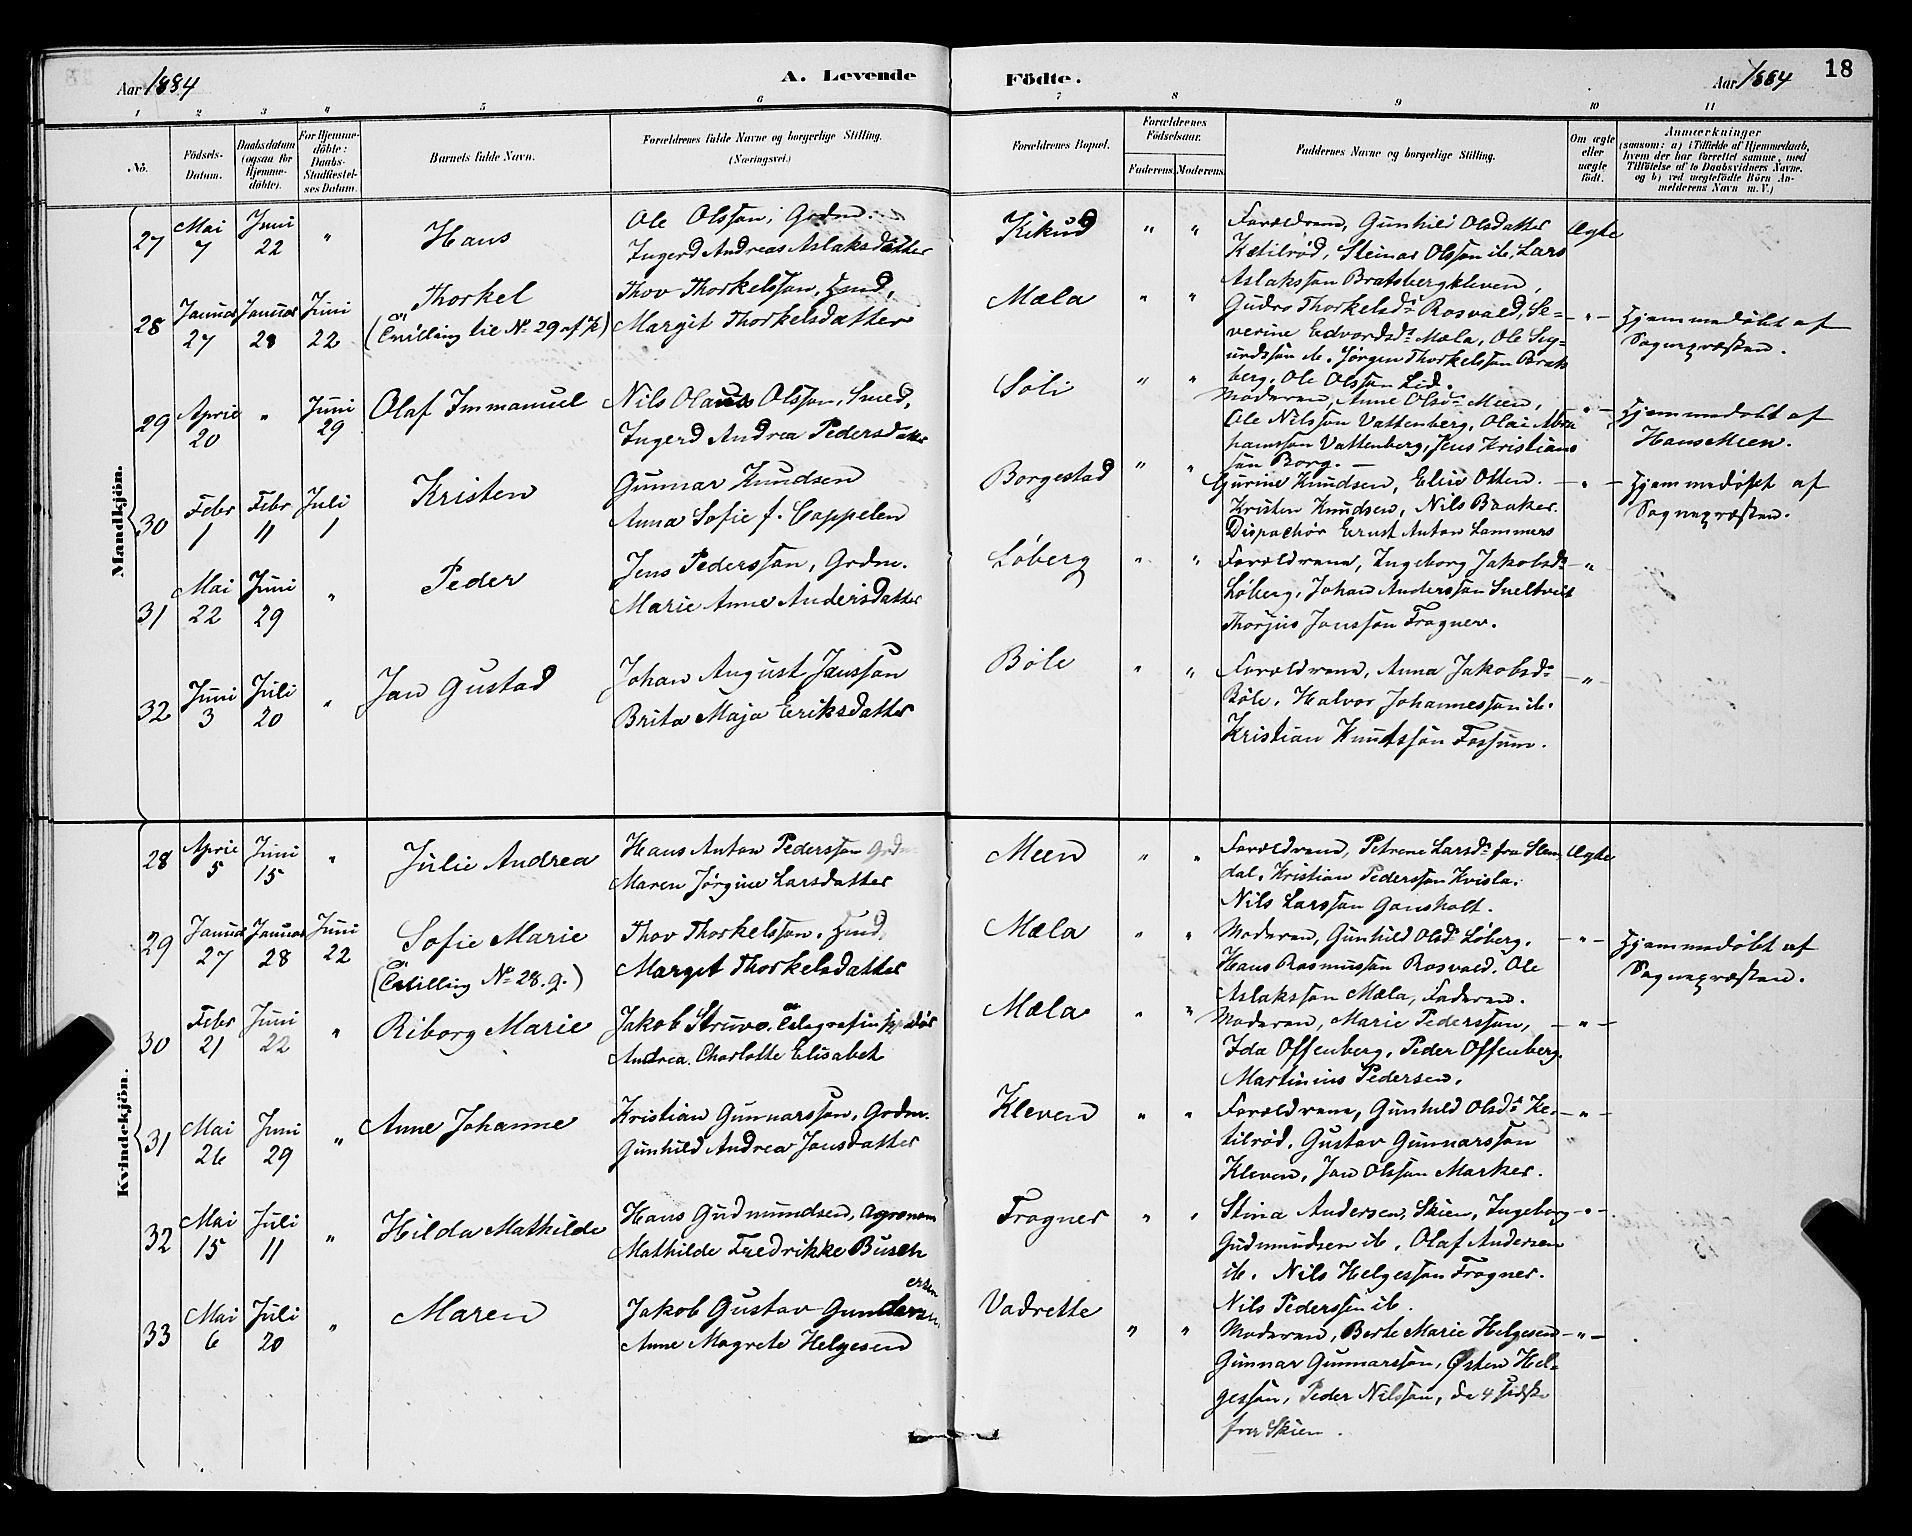 Aar 1884
A. Levende
Födte.
Aar 1884
18
1 2 3 4 5 6 7 8 9 10 11
No.
Födsels-Datum.
Daabsdatum (ogsaa for Hjemme-döbte).
For Hjemme-döbte: Daabs-Stadfæstel-ses Datum.
Barnets fulde Navn.
Forældrenes fulde Navne og borgerlige Stilling.
(Næringsvei.)
Forældrenes Bopæl.
Forældrenes Födselsaar.
Faderens. Moderens.
Faddernes Navne og borgerlige Stilling.
Om ægte eller uægte födt.
Anmærkninger
(saasom: a) i Tilfælde af Hjemmedaab, hvem der har forrettet samme, med Tilföielse af to Daabsvidners Navne. og b) ved uægtefödte Börn An-melderens Navn m. V.)
Mandkjön.
27 Mai 7 Juni 22 " Hans
Ole Olsson, Grdm.
Ingerd Andreas Aslaksdatter
Kikud " "
Forældrene, Gunhild Olsdatter
Ketilrød, Steinar Olsson ib, Lars
Aslaksson Bratsbergkleven,
Ægte
28 Januar 27 Januar 28 Juni 22
Thorkel
(Tvilling til No 29 af K)
Thov Thorkelsson, Hmd,
Margit Thorkelsdatter
Mæla " "
Gudro Thorkelsd. Rosvald, Se-
verine Edvardsd. Mæla, Ole Sig-
urdsson ib. Jørgen Thorkelsson Brats
berg, Ole Olsson Lid.
- " -
Hjemmedøbt af
Sognepræsten.
29 April 20 " Juni 29
Olaf Immanuel
Nils Olaus Olsson, Smed,
Ingerd Andrea Pedersdatter
Søli " "
Moderen, Anne Olsd. Meen,
Ole Nilsson Vattenberg, Olai Abra
hamsson Vattenberg, Jens Kristians
søn Borg. -
- " -
Hjemmedøbt af
Hans Meen.
30 Febr 1 Febr 11 Juli 1
Kristen
Gunnar Knudsen
Anna Sofie f. Cappelen
Borgestad " "
Gurine Knudsen, Elise Otten.
Kristen Knudsen, Nils Baaker.
Dispachør Ernst Anton Lammers
- " -
Hjemmedøbt af
Sognepræsten.
31 Mai 22 Juni 29 "
Peder
Jens Pedersson, Grdm.
Marie Anne Andersdatter
Løberg " "
Forældrene, Ingeborg Jakobsd.
Løberg, Johan Andersson Sneltvet
Thorjus Jonsson Frogner.
- " -
32 Juni 3 Juli 20 "
Jan Gustad
Johan August Jansson
Brita Maja Eriksdatter
Bøle " "
Forældrene, Anna Jakobsd.
Bøle, Halvor Johannesson ib.
Kristian Knutsson Fossum.
- " -
Kvindekjön.
28 April 5 Juni 15 "
Julie Andrea
Hans Anton Pedersson Grdm
Maren Jørgine Larsdatter
Meen " "
Forældrene, Petrene Larsd. fra Slem
dal, Kristian Pedersson Kvisla.
Nils Larsson Gansholt.
Ægte
29 Januar 27 Januar 28 Juni 22
Sofie Marie
(Tvilling No 28. g.)
Thov Thorkelsson, Hmd,
Margit Thorkelsdatter
Mæla " "
Moderen, Gunhild Olsd. Løberg.
Hans Rasmussøn Rosvald, Ole
Aslaksson Mæla, Faderen.
- " -
Hjemmedøbt af
Sognepræsten.
30 Febr 21 Juni 22 "
Riborg Marie
Jakob Struve, Telegrafinspektør
Andrea Charlotte Elisabet
Mæla " "
Moderen, Marie Pedersson,
Ida Offenberg, Peder Offenberg.
Martinius Pedersen.
- " -
31 Mai 26 Juni 29 "
Anne Johanne
Kristian Gunnarsson, Grdm.
Gunhild Andrea Jansdatter
Kleven " "
Forældrene, Gunhild Olsd. Ke-
tilrød, Gustav Gunnarsson
Kleven, Jan Olsson Marker.
- " -
32 Mai 15 Juli 11 "
Hilda Mathilde
Hans Gudmundsen, Agronom
Mathilde Fredrikke Busch
Frogner " "
Stina Andersen, Skien, Ingeborg
Gudmundsen ib. Olaf Andersen
ib. Nils Helgesson Frogner.
Nils Pedersson ib.
- " -
33 Mai 6 Juli 20 "
Maren
Jakob Gustav Gundersen
Anne Magrete Helgesen
Vadrette " "
Moderen, Berte Marie Helgesen
Gunnar Gunnarsson, Østen Hel-
gesson, Peder Nilsson, de 4 sidste
fra Skien.
- " -